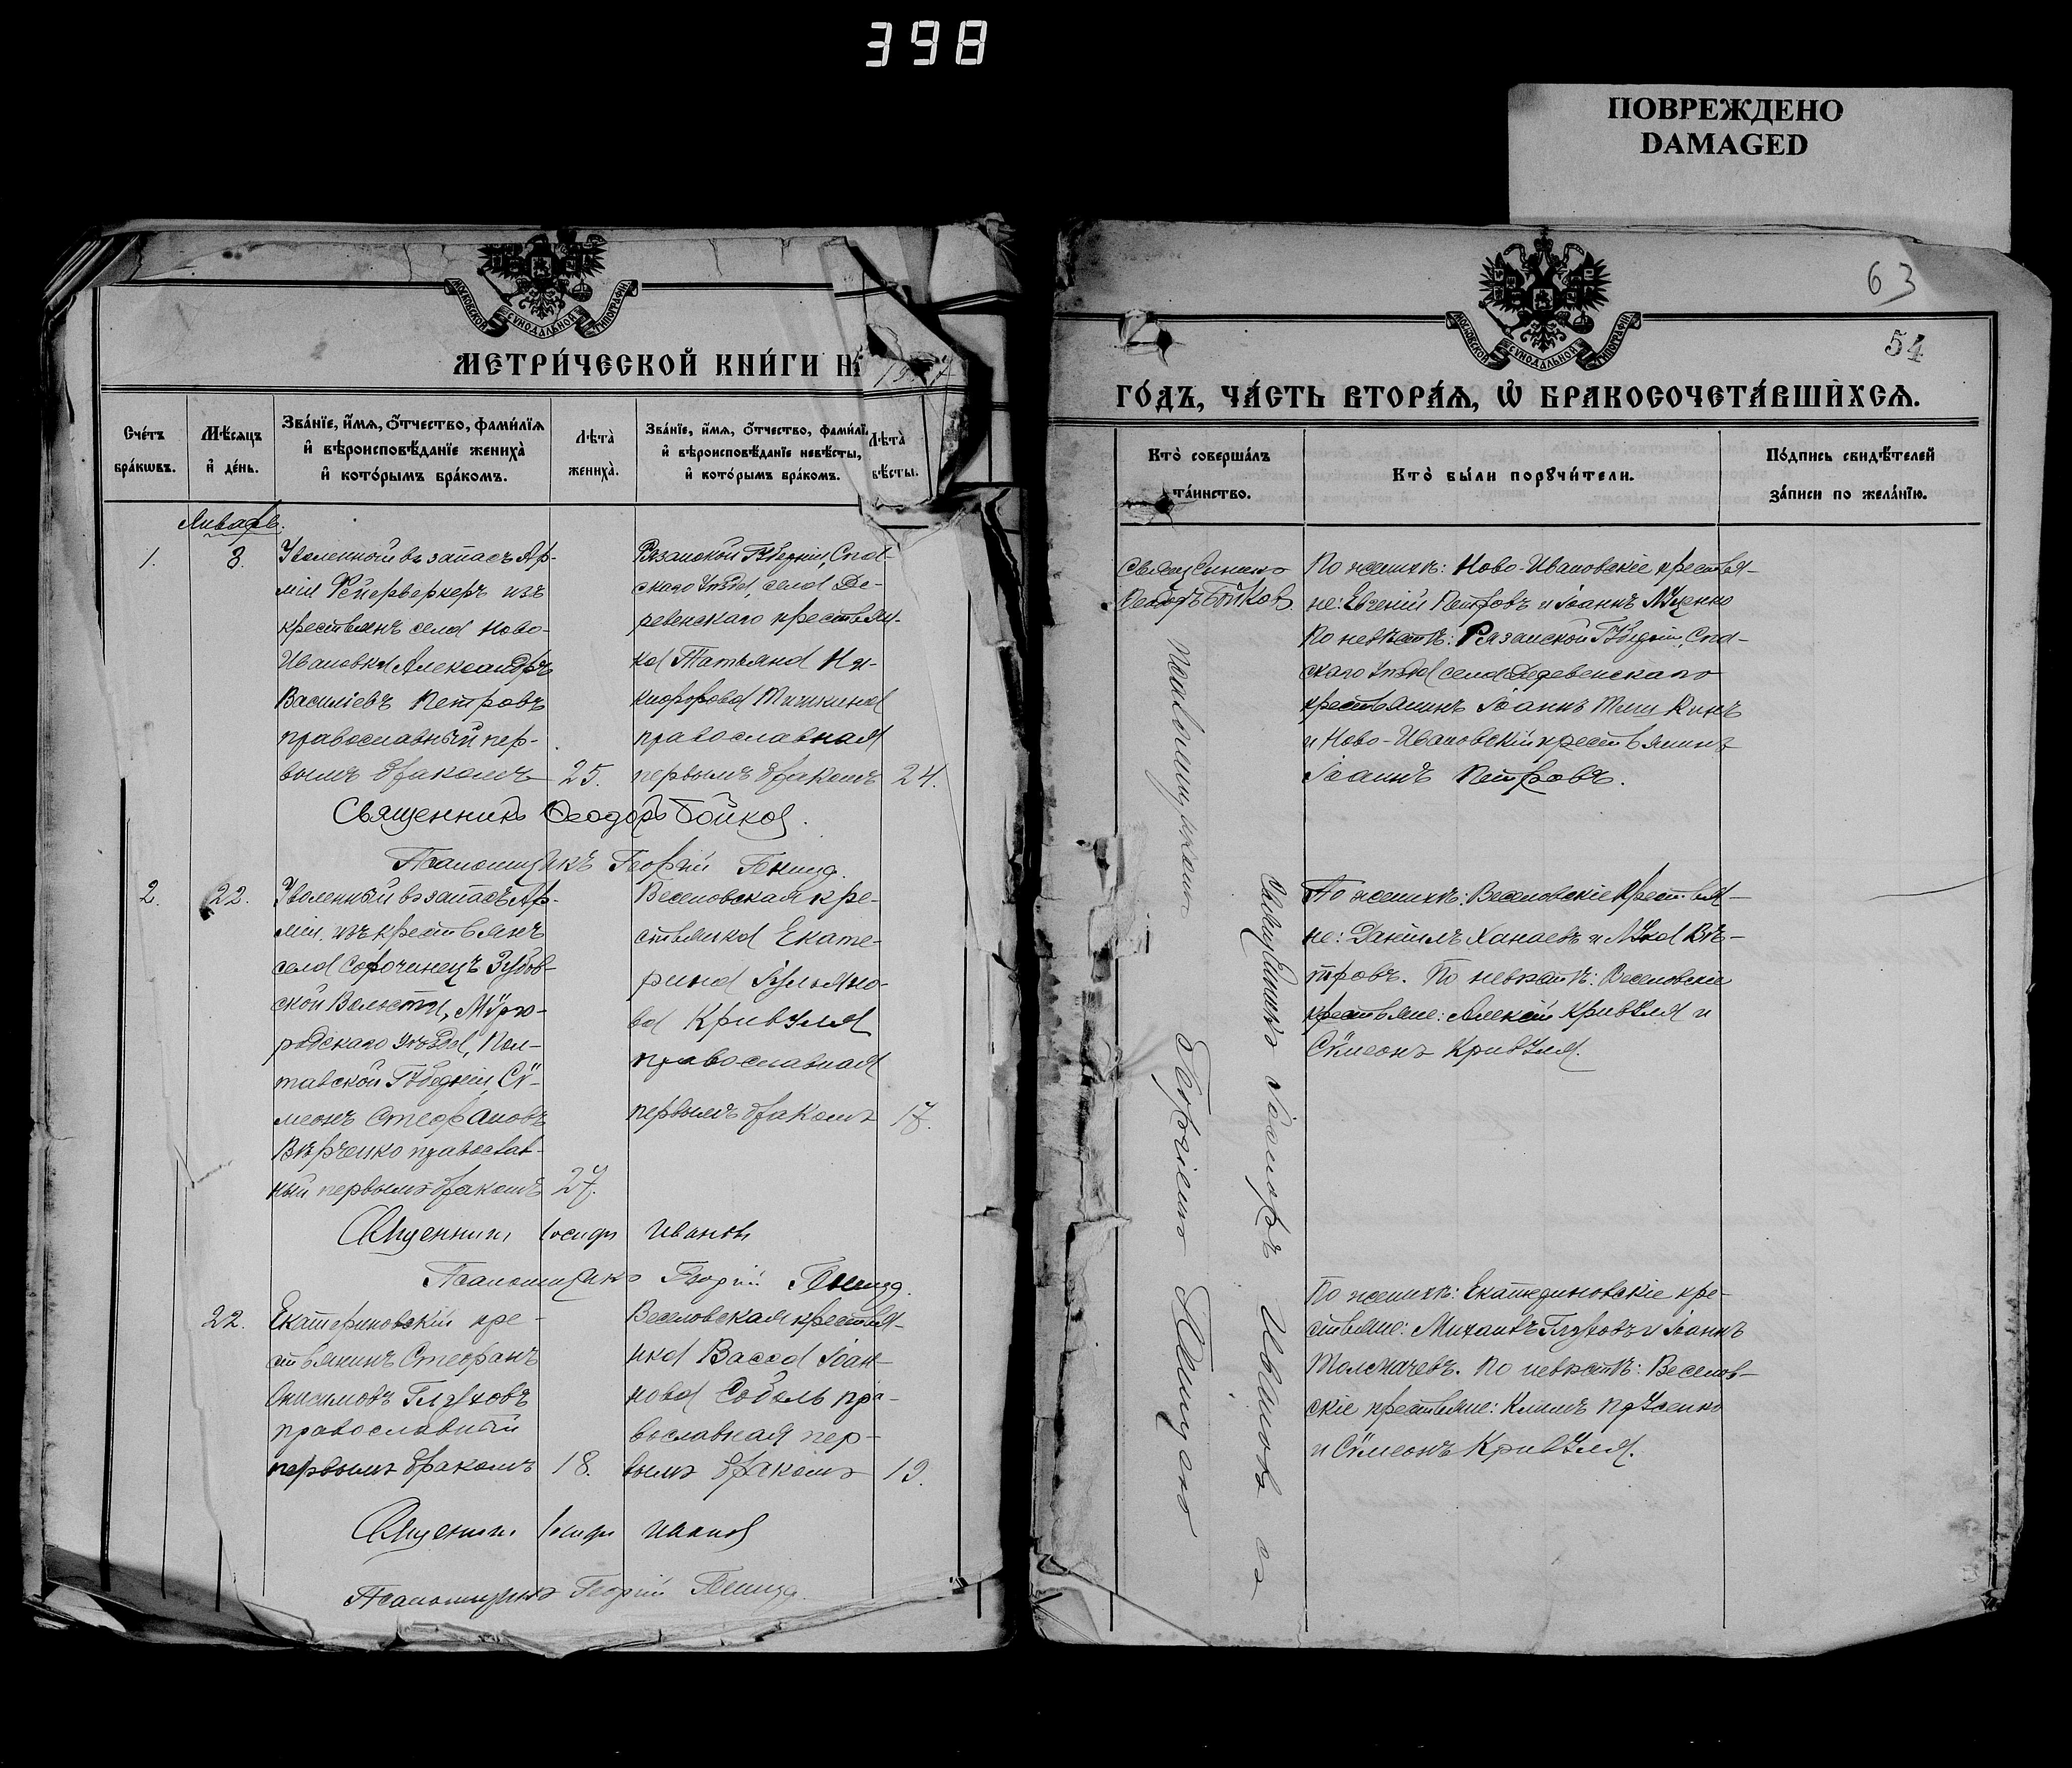 398
ПОВРЕЖДЕНО
DAMAGED
МОСКОВСКОЙ СѴНОДАЛЬНОЙ ТИПОГРАФІИ
МЕТРИ́ЧЕСКОЙ КНИ́ГИ Н
Сче́тъ бра́кωвъ.
Мѣ́сяцъ и҆ де́нь.
Зва́нїе, и҆́мѧ, ѻ҆́тчество, фами́лїѧ
и҆ вѣроисповѣ́данїе жениха̀
и҆ кото́рымъ бра́комъ.
Лѣта̀ жениха̀.
Зва́нїе, и҆́мѧ, ѻ҆́тчество, фами́лї
и҆ вѣроисповѣ́данїе невѣ́сты,
и҆ кото́рымъ бра́комъ.
Лѣта̀
вѣ́сты.
Январь.
1.
8.
Уволенной въ запасъ Ар-
міи Фейерверкеръ изъ
крестьянъ села Ново-
Ивановки Александръ
Василіевъ Петровъ
православный пер-
вымъ бракомъ
25.
Рязанской Губерніи, Спа-
скаго Уѣзда, села Де-
ревенскаго крестьян-
ка Татьяна Ни-
кифорова Тишкина
православная
первымъ бракомъ
24.
Священникъ Ѳеодоръ Бойков.
Псаломщикъ Георгій
2.
22.
Уволенный въ запасъ Ар-
міи изъ крестьянъ
села Сорочинецъ Зубов-
ской Волости, Мирго-
родскаго уѣзда, Пол-
тавской Губерніи, Сѵ-
меонъ Стефановъ
Вѣрченко православ-
ный первымъ бракомъ
27.
Веселовская кре-
стьянка Екате-
рина Іульяно-
ва Кривуля
православная
первымъ бракомъ
17.
Священникъ Іосифъ Ивановъ
Псаломщикъ Георгій
22.
Екатериновскій кре-
стьянинъ Стефанъ
Онисимовъ Глуховъ
православный
первымъ бракомъ
18.
Веселовская крестья-
нка Васса Іоан-
нова Соболь пра-
вославная пер-
вымъ бракомъ
19.
Священникъ Іосифъ Иванов
Псаломщикъ Георгій
63
54
МОСКОВСКОЙ СѴНОДАЛЬНОЙ ТИПОГРАФІИ
ГО́ДЪ, ЧА́СТЬ ВТОРА́Ѧ, Ѡ҆ БРАКОСОЧЕТА́ВШИХСѦ.
Кто̀ соверша́лъ
та́инство.
Кто̀ бы́ли порꙋчи́тели.
По́дпись свидѣ́телей
за́писи по жела́нїю.
Священникъ
Ѳеодоръ Бойков
Псаломщикомъ Георгіемъ
Священникъ Іосифъ Ивановъ съ
По женихѣ: Ново-Ивановскіе крестья-
не: Евгеній Петровъ и Іоаннъ Луценко
По невѣстѣ: Рязанской Губерніи, Спа-
скаго Уѣзда села Деревенскаго
крестьянинъ Іоаннъ Тишкинъ
и Ново-Ивановскій крестьянинъ
Іоаннъ Петровъ.
По женихѣ: Веселовскіе крестья-
не: Даніилъ Ханаевъ и Лука Вѣ-
тровъ. По невѣстѣ: Веселовскіе
крестьяне: Алексій Кривуля и
Сѵмеонъ Кривуля.
По женихѣ: Екатериновскіе кре-
стьяне: Михаилъ Глуховъ и Іоаннъ
Толмачевъ. По невѣстѣ: Веселов-
скіе крестьяне: Климъ
и Сѵмеонъ Кривуля.